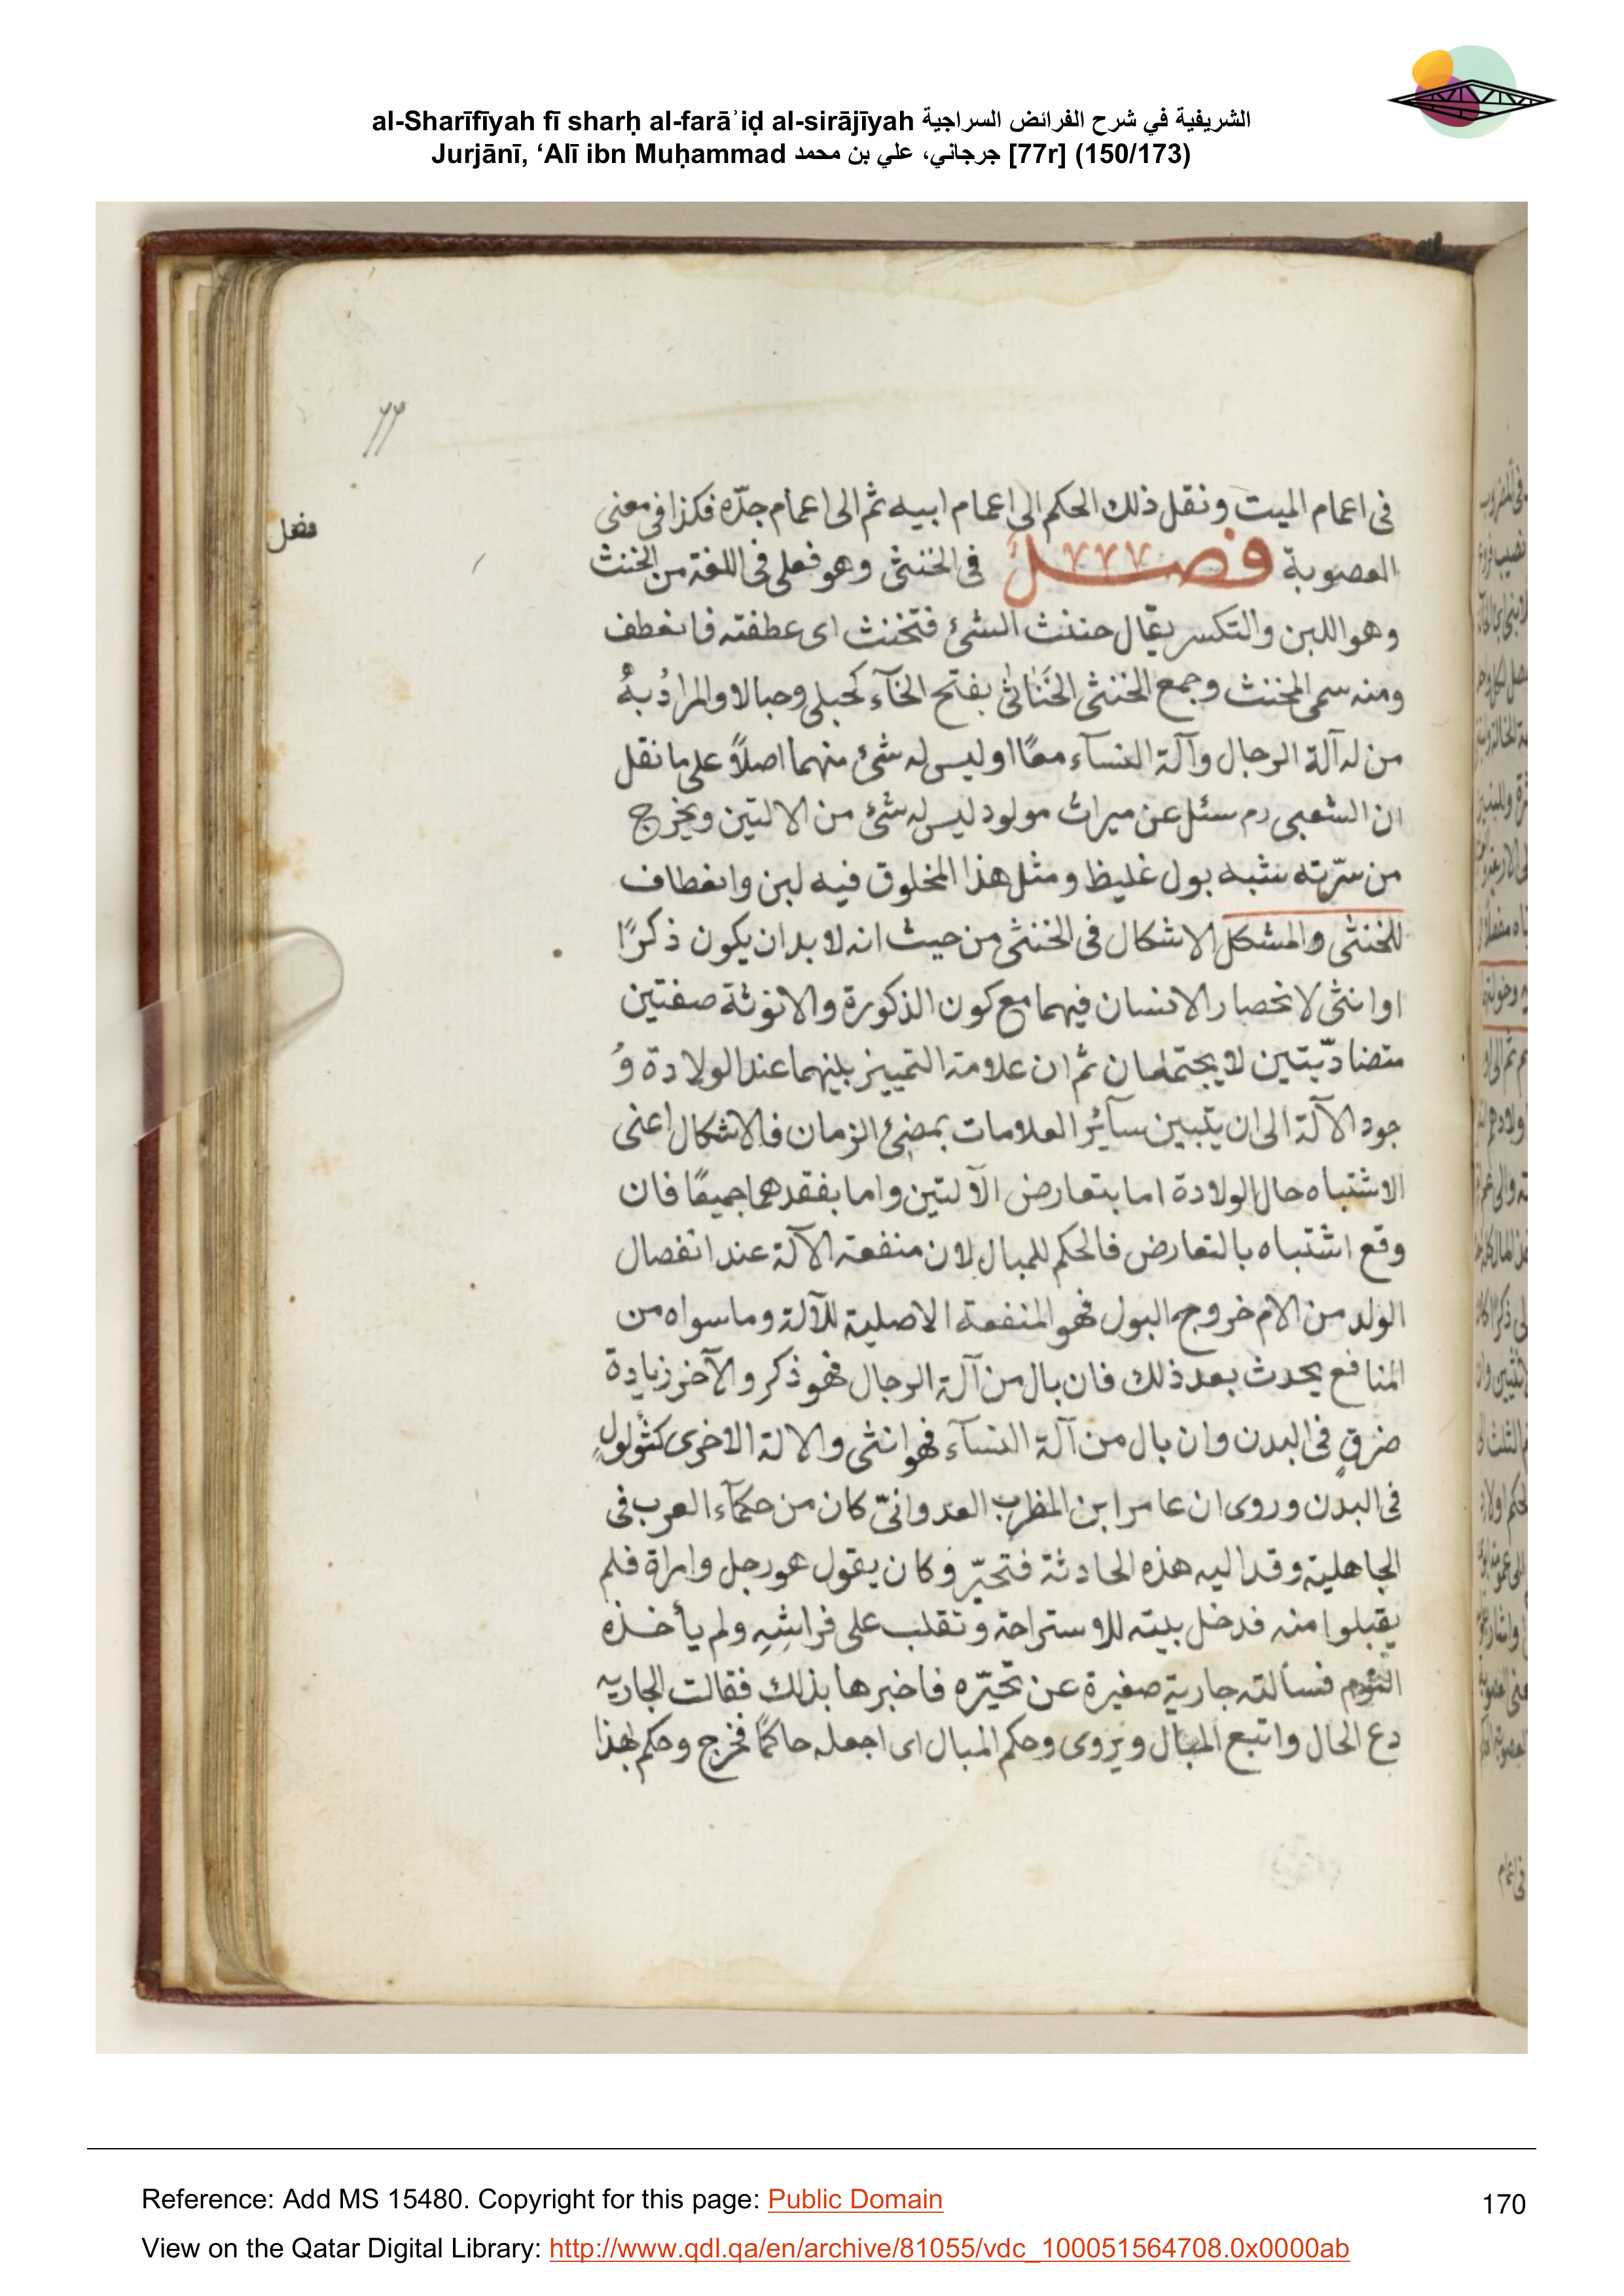 al-Sharīfīyah fī sharḥ al-farāʾiḍ al-sirājīyah الشريفية في شرح الفرائض السراجية
Jurjānī, ‘Alī ibn Muḥammad جرجاني، علي بن محمد [77r] (150/173)
٧٧
فصل
فى اعمام الميت ونقل ذلك الحكم الى اعمام ابيه ثم الى اعمام جدّه فكذا فى معنى
العصوبة فصل فى الخنثى وهو فعلى فى اللغة من الخنث
وهو اللين والتكسر يقال خنثت الشئ فتخنث اى عطفته فانعطف
ومنه سمى المخنث وجمع الخنثى الخَنَاثى بفتح الخآء كحبلى وحبالا والمرادُ بهُ
من له آلة الرجال وآلة النسآء معًا او ليس له شئ منهما اصلاً على ما نقل
ان الشعبى رم سئل عن ميراث مولود ليس له شئ من الالتين ويخرج
من سرّته شبه بول غليظ ومثل هذا المخلوق فيه لين وانعطاف
للخنثى والمشكل الاشكال فى الخنثى من حيث انه لا بد ان يكون ذكرًا
او انثى لانحصار الانسان فيهما مع كون الذكورة والانوثة صفتين
متضادّتين لا يجتمعان ثم ان علامة التمييز بينهما عند الولادة وُ
جود الآلة الى ان يتبين سآئر العلامات بمضئ الزمان فالاشكال اعنى
الاشتباه حال الولادة اما بتعارض الآلتين واما بفقدهما جميعًا فان
وقع اشتباه بالتعارض فالحكم للمبال لان منفعة الآلة عند انفصال
الولد من الام خروج البول فهو المنفعة الاصلية للآلة وما سواه من
المنافع يحدث بعد ذلك فان بال من آلة الرجال فهو ذكر والآخر زيادة
خرقٍ فى البدن وان بال من آلة النسآء فهو انثى والالة الاخرى كثؤلولٍ
فى البدن وروى ان عامر ابن المظرب العدوانىّ كان من حكمآء العرب فى
الجاهلية وقد اليه هذه الحادثة فتحيّر وكان يقول هو رجل وامراة فلم
يقبلوا منه فدخل بيته للاستراحة وتقلب على فراشِهِ ولم يأخذه
النوم فسألته جارية صغيرة عن تحيّره فاخبرها بذلك فقالت الجاريه
دع الحال واتبع المبال ويروى وحكم المبال اى اجعله حاكمًا فخرج وحكم بهذا
Reference: Add MS 15480. Copyright for this page: Public Domain
170
View on the Qatar Digital Library: http://www.qdl.qa/en/archive/81055/vdc_100051564708.0x0000ab